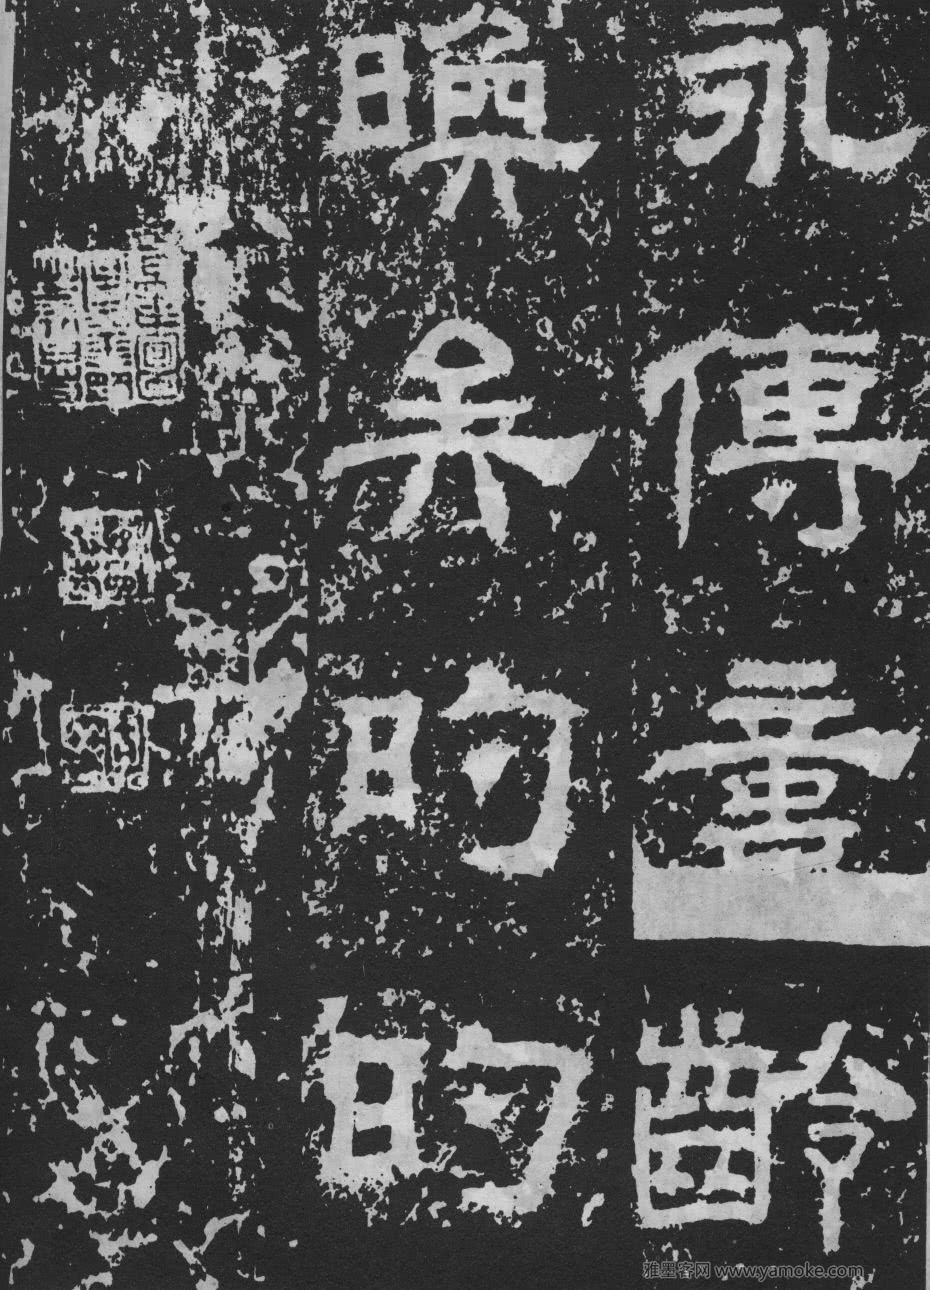 永傳童齡
㬇矣旳旳
雅墨客网 www.yamoke.com